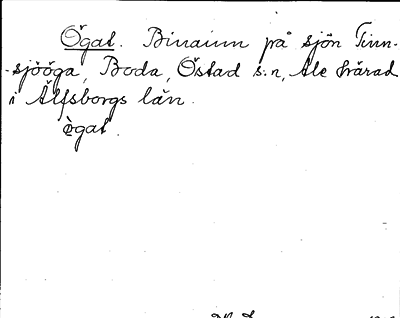 Ögat. Binamn på sjön Tinn-
-sjööga, Boda, Östad s:n, Ale härad
i Älfsborgs län.
ògat.